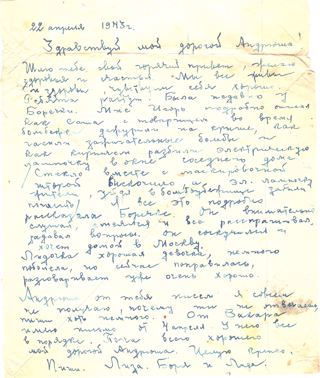 22 апреля 1943 г.
Здравствуй мой дорогой Андрюша!
Шлю тебе свой горячий привет, желаю
здоровья и счастья. Мы все живы
и здоровы, чувствуем себя хорошо.
Ребята растут. Была недавно у
Бореньки. Мне Игорь подробно описал
как Саша с товарищем во время
бомбежки дежурил на крыше, как
гасили зажигательные бомбы и
как кирпичем разбили электрическую
лампочку в окне соседнего дома
/Стекло вместе с маскировочной
шторой вылетело а эл. лампочку
жители уйдя в бомбоубежище забыли
погасить/ Я все это подробно
рассказала Бореньке. Он внимательно
слушал, смеялся и все расспрашивал,
задавал вопросы. он соскучился и
хочет домой в Москву.
Лидочка хорошая девочка, немного
поболела, но сейчас поправилась,
разговаривает уже очень хорошо.
Андрюша от тебя писем я совсем
не получаю, почему ты не отвечаешь,
пиши хоть немного. От Захара
имею письмо 11 Апреля. У него все
в порядке. Пока всего хорошего
мой дорогой Андрюша. Целую крепко.
Пиши. Лиза. Боря и Лида.